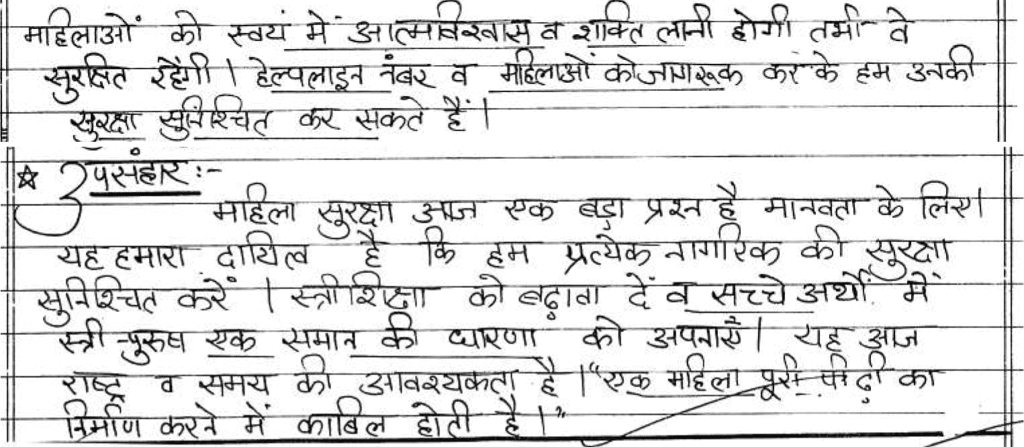 महिलाओं को स्वयं में आत्मविश्वास व शक्ति लानी होगी तभी वे
सुरक्षित रहेंगी । हेल्पलाइन नंबर व महिलाओं को जागरूक कर के हम उनकी
सुरक्षा सुनिश्चित कर सकते हैं ।
☆ उपसंहार :-
महिला सुरक्षा आज एक बड़ा प्रश्न है मानवता के लिए।
यह हमारा दायित्व है कि हम प्रत्येक नागरिक की सुरक्षा
सुनिश्चित करें । स्त्री शिक्षा को बढ़ावा दें व सच्चे अर्थों में
स्त्री -पुरुष एक समान की धारणा को अपनाएँ। यह आज
राष्ट्र व समय की आवश्यकता है । "एक महिला पूरी पीढ़ी का
निर्माण करने में काबिल होती है ।"